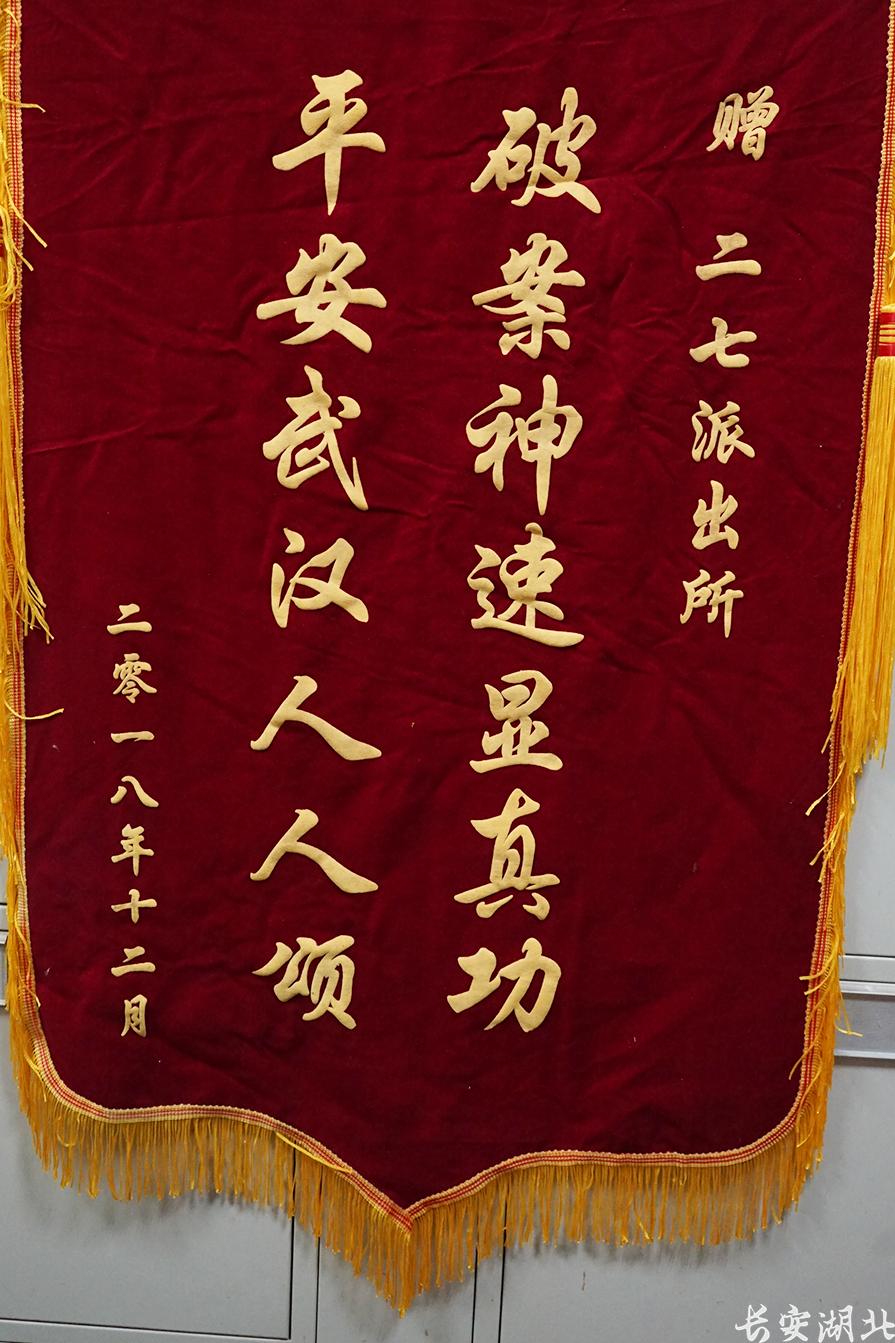 赠 二七派出所
破案神速显真功
平安武汉人人颂
二零一八年十二月
长安湖北